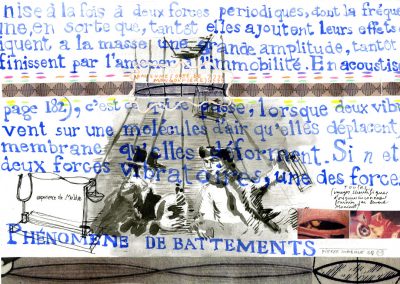 nise à la fois à deux forces periodiques, dont la fréque
ne, en sorte que, tantôt elles ajoutent leurs effets
iquent a la masse une grande amplitude, tantot
finissent par l'amener à l'immobilité. En acoustiq
page 182), c'est ce qui se passe, lorsque deux vibr
vent sur une molécules d'air qu'elles déplacent,
membrane qu'elles déforment. Si n et
deux forces vibratoires, une des force
expérience de Melde
PHÉNOMÈNE DE BATTEMENTS